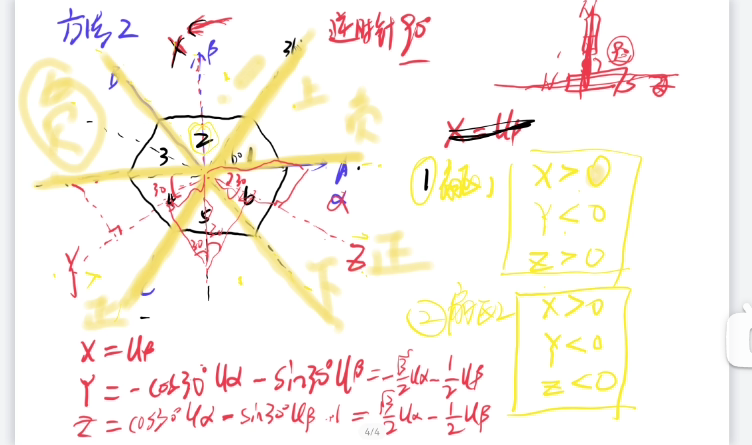 方法2
逆时针90°
X
β
31
D
负
上
负
2
3
60°
1
A
α
30
4
230
6
5
30
Y
Z
正
下
正
N
S
X = Uβ
① 扇区1
X > 0
Y < 0
Z > 0
② 扇区2
X > 0
Y < 0
Z < 0
X = Uβ
Y = - cos30° Uα - sin30° Uβ = - √3/2 Uα - 1/2 Uβ
Z = cos30° Uα - sin30° Uβ = √3/2 Uα - 1/2 Uβ
4/4